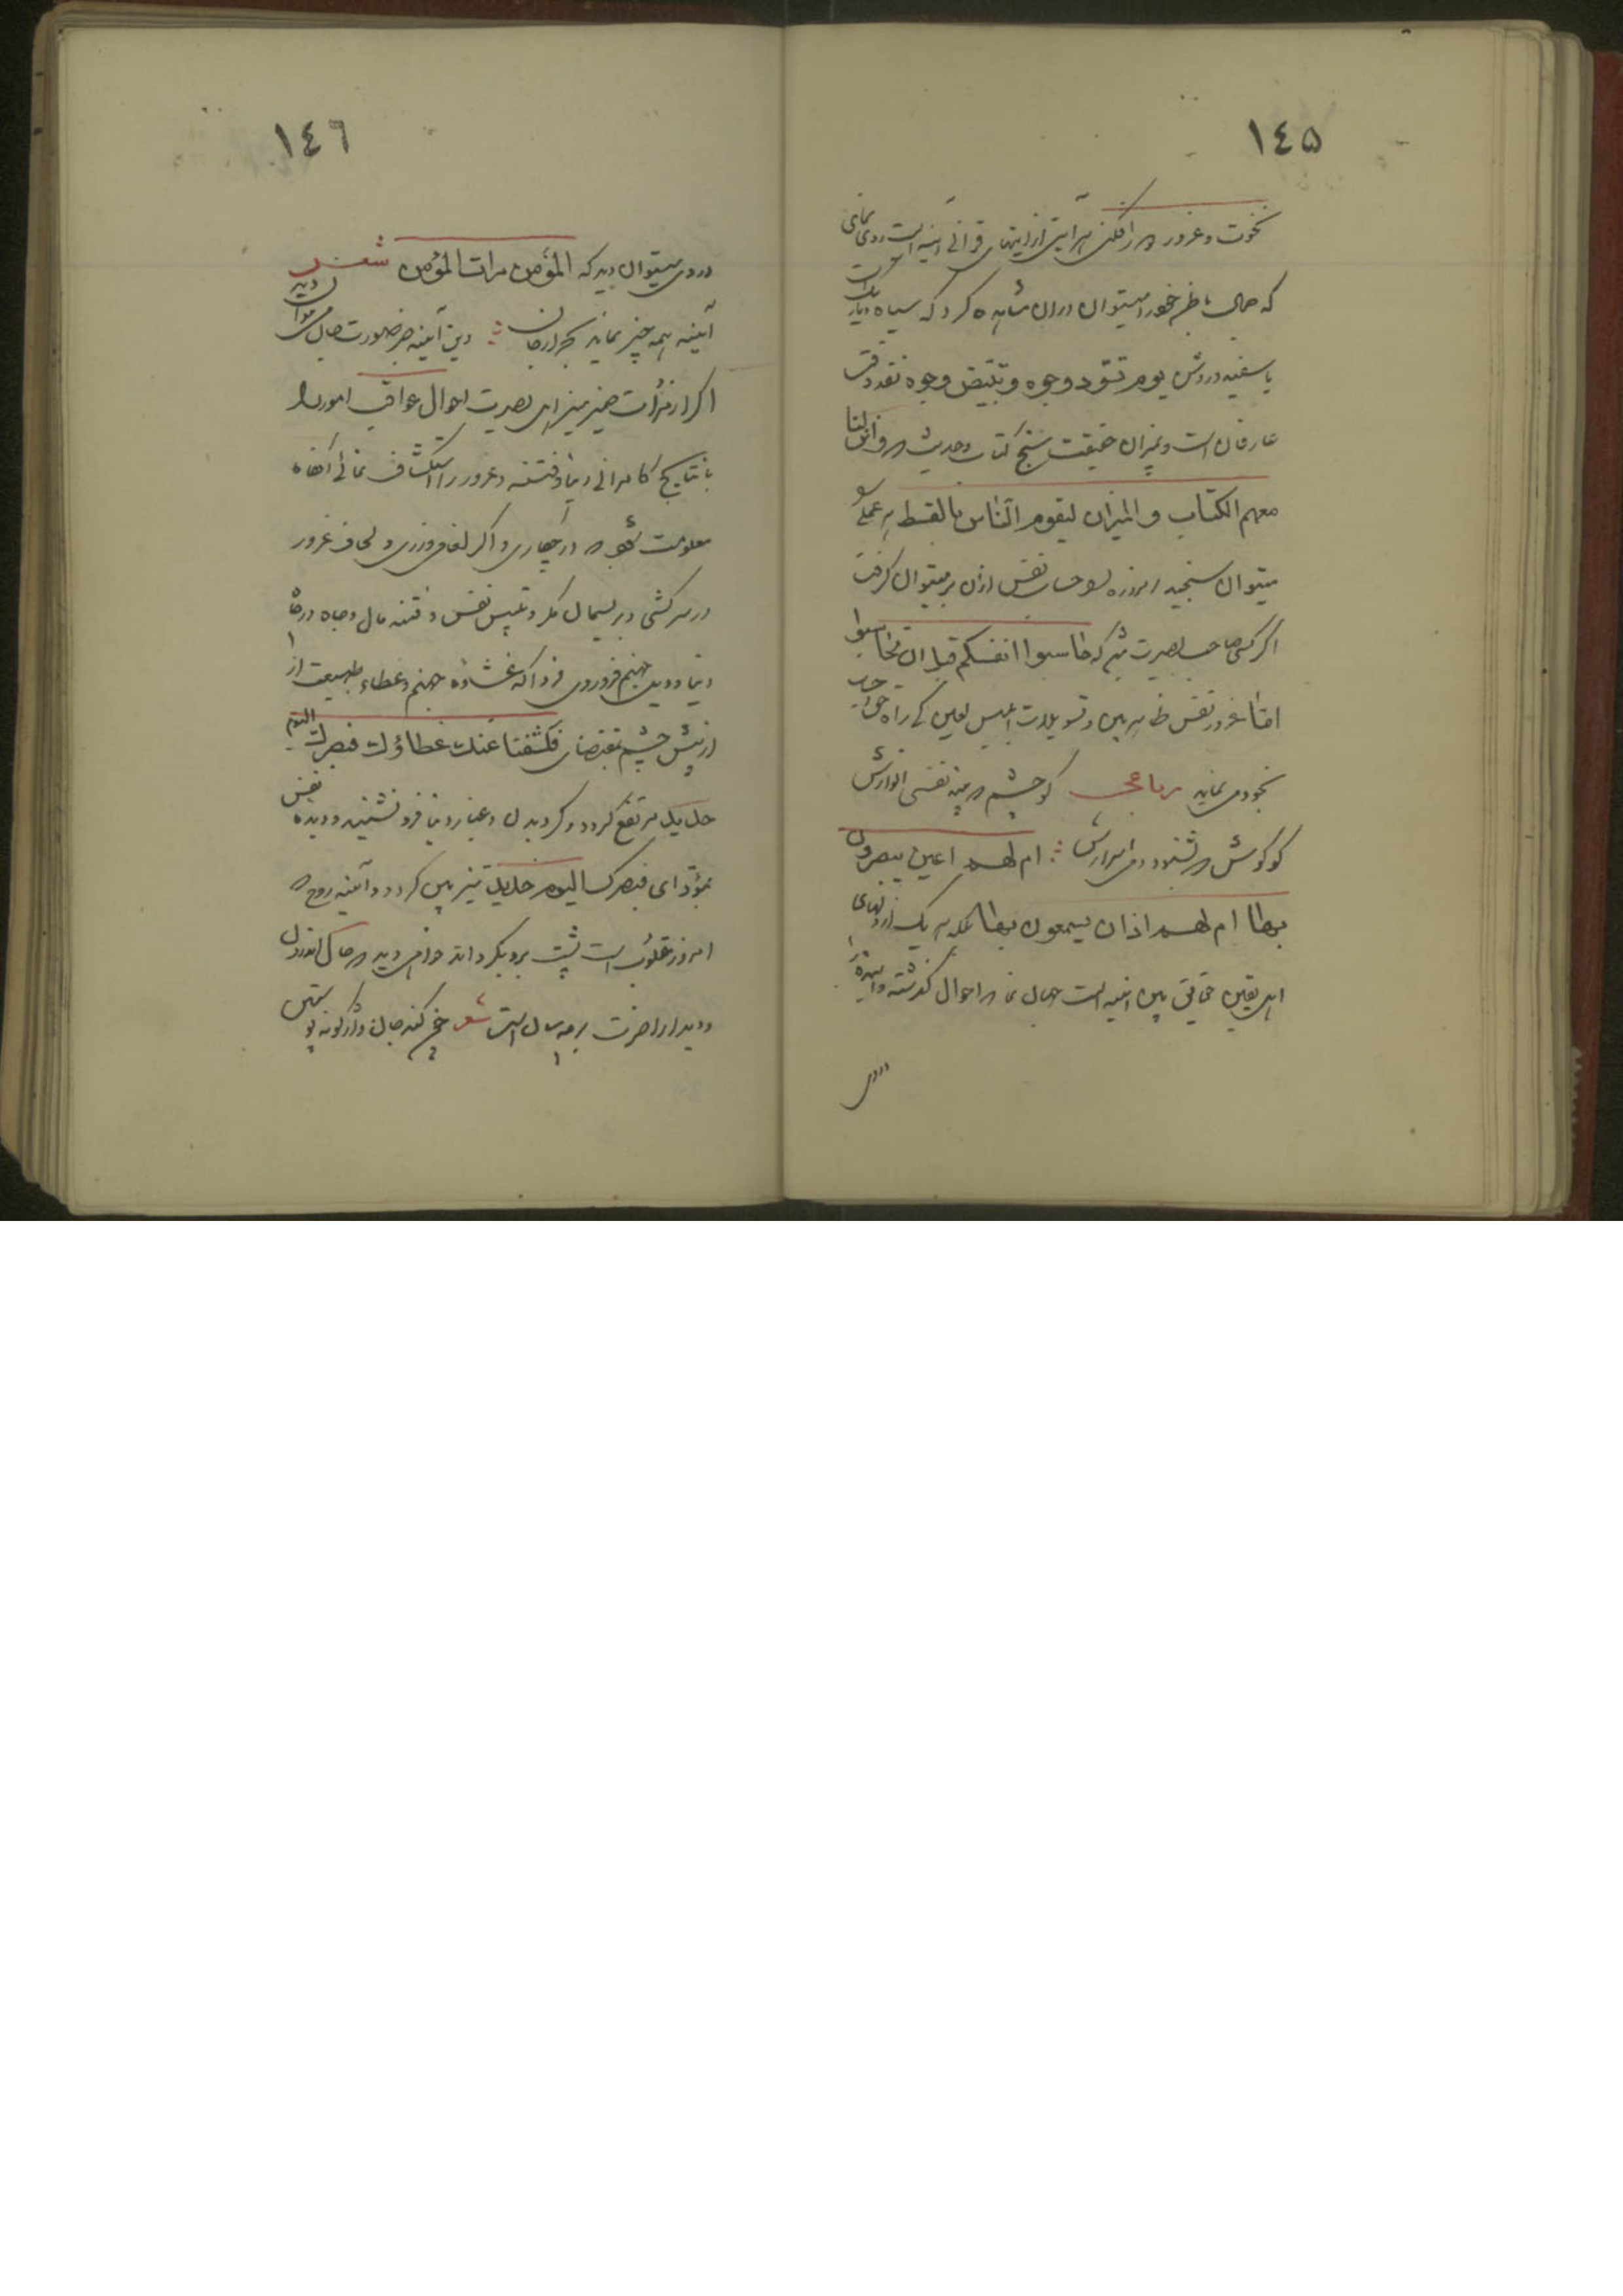 ١٤٥
نخوت و غرور در افکن هر آیتی از آیتهای قرآنی آینه است روی نمای
که جمال باطن خود را میتوان در آن مشاهده کرد که سیاه
یا سفید و روشن یوم تسود وجوه و تبیض وجوه نقد وقت
عارفان است و میزان حقیقت سنج کتاب و حدیث در و انزلنا
معهم الکتاب و المیزان لیقوم الناس بالقسط هر عملی
میتوان سنجید امروزه حساب نفس ازان بر میتوان گرفت
اگر کسی صاحب بصیرت که حاسبوا انفسکم قبل ان تحاسبوا
اما غرور نفس ظاهر بین و تسویلات ابلیس لعین کی راه حق
بخود می نماید رباعی کو چشم که بیند نفسی انوارش
کو گوش که بشنود دمی اسرارش ام لهم اعین یبصرون
بها ام لهم اذان یسمعون بها بلکه هر یک از دلهای
اهل یقین حقایق بین آینه است جهان نما که احوال گذشته و آینده
در وی
١٤٦
در وی میتوان دید که المؤمن مرات المؤمن شعر
آینه همه چیز نماید بجز از جان وین آینه جز صورت جان می نتوان دید
اگر از مرآت ضمیر منیر اهل بصیرت احوال عواقب امور را
با نتایج کامرانی دنیا و فتنه و غرور را استکشاف نمائی آنگاه
معلومت شود که در چه کاری و اگر نه و لحاف غرور
در سر کشی و ریسمان مکر و تلبیس نفس و فتنه مال و جاه در چاه
دنیا و ویل جهنم فرو روی فردا که غشاوه جهنم و غطاء طبیعت از
از پیش چشم بمقتضای فکشفنا عنک غطاؤک فبصرک الیوم
حدید مرتفع گردد و گرد بدن و غبار دنیا فرو نشیند و دیده نفس
بمؤدای فبصرک الیوم حدید تیز بین گردد و آینه روح که
امروز مقلوب است پشت بروی گرداند خواهی دید که حاصل اندرون
و دیدار آخرت بر چه سان است شعر چرخ کند جان واژگونه پوستین